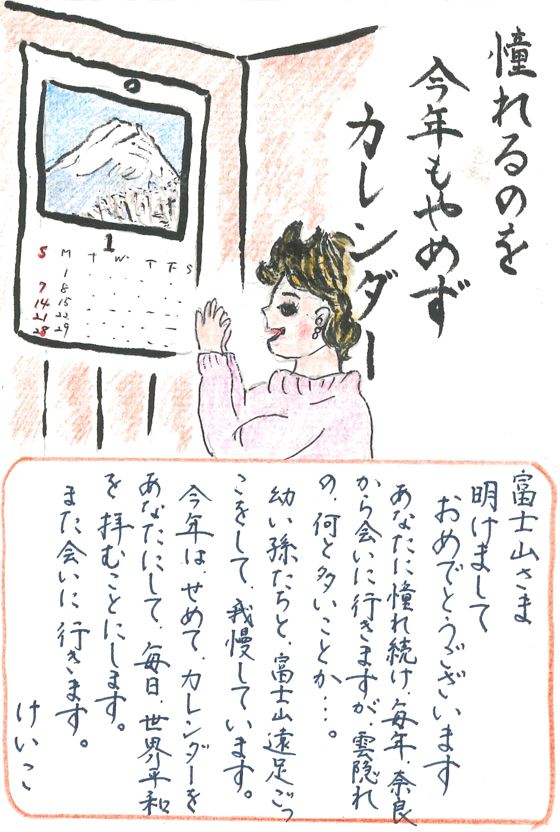 憧れるのを
今年もやめず
カレンダー
1
S M T W T F S
1
7 8
14 15
21 22
28 29
富士山さま
明けまして
おめでとうございます
あなたに憧れ続け、毎年、奈良
から会いに行きますが、雲隠れ
の、何と多いことか…。
幼い孫たちと、富士山遠足ごっ
こをして、我慢しています。
今年は、せめて、カレンダーを
あなたにして、毎日、世界平和
を拝むことにします。
また会いに行きます。
けいこ